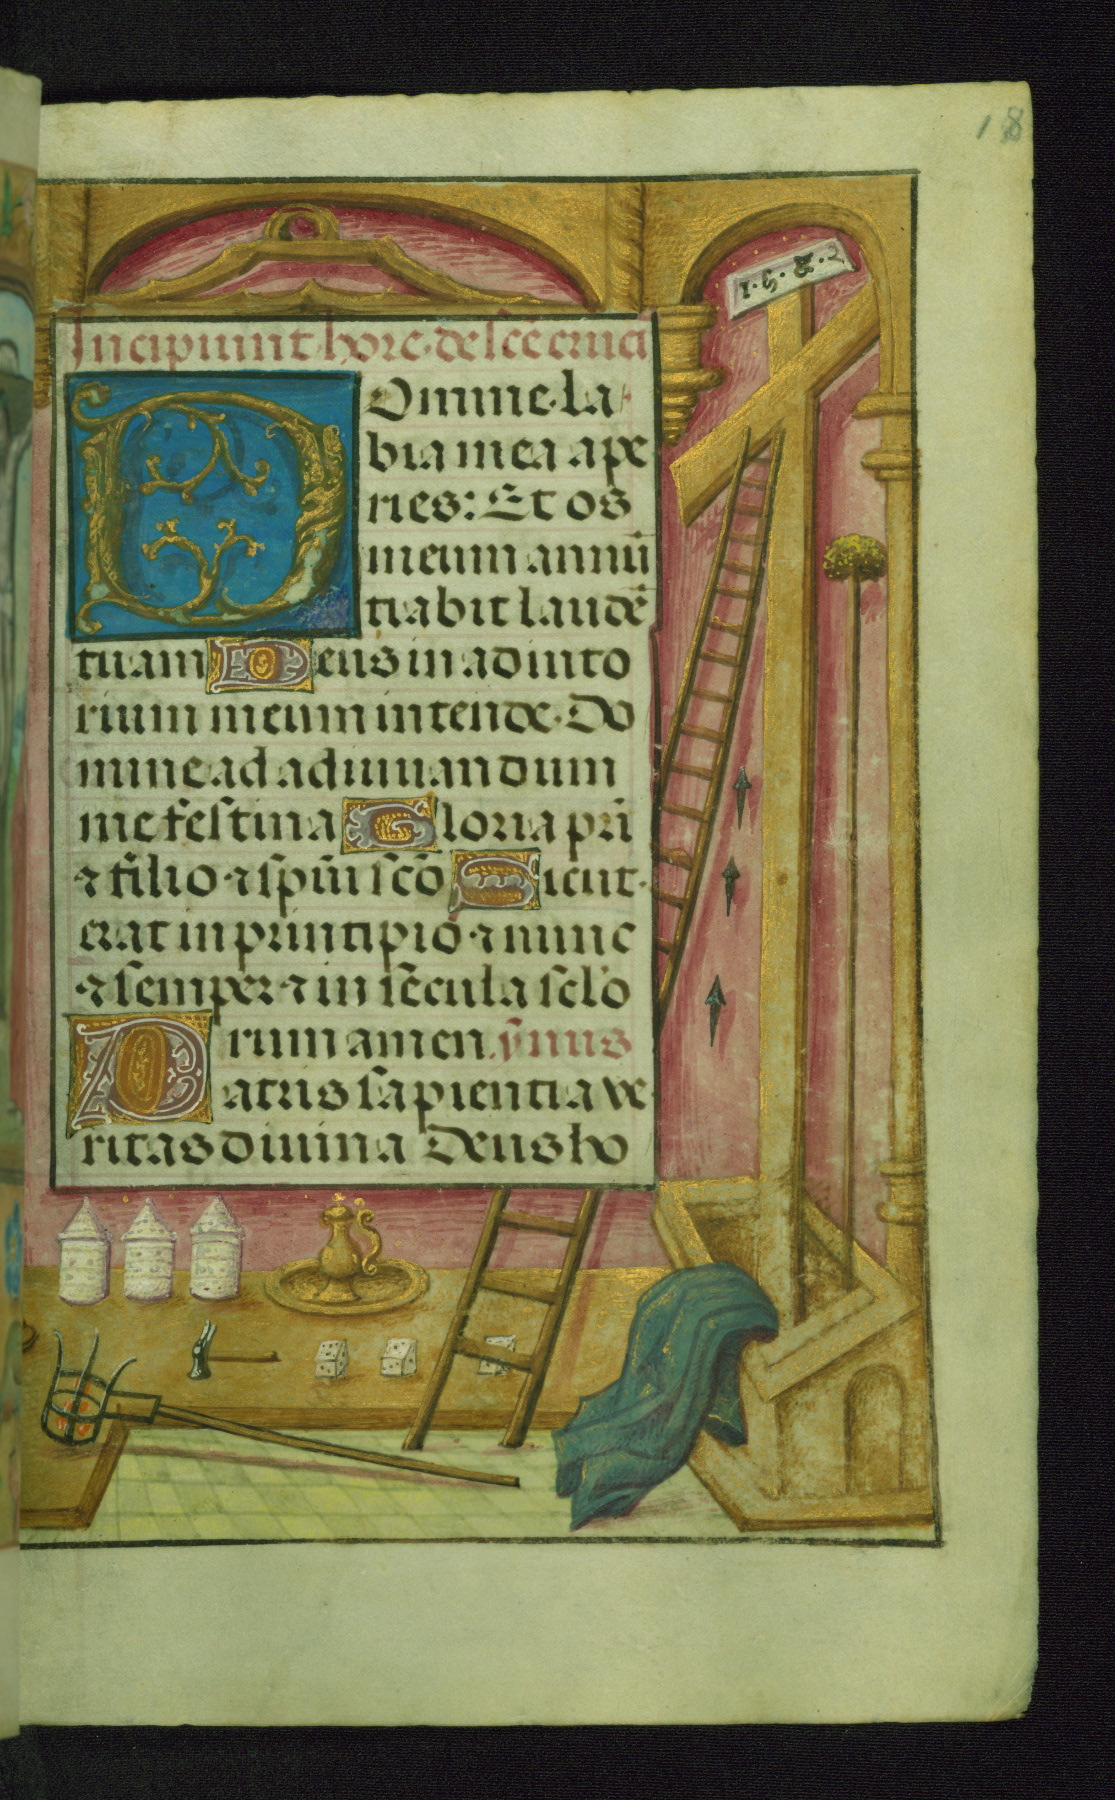 18
1·5·8·2
Incipiunt hore de scē cruci
Domine·la
bia mea ape
ries: Et os
meum annū
tiabit laudē
tuam Deus in adiuto
rium meum intende· Do
mine ad adiuuandum
me festina Gloria pr̄i
⁊ filio ⁊ spūi scō Sicut·
erat in principio ⁊ nunc
⁊ semper ⁊ in sēcula sclō
rum amen. ȳmus
Patris sapientia ve
ritas divina Deus ho